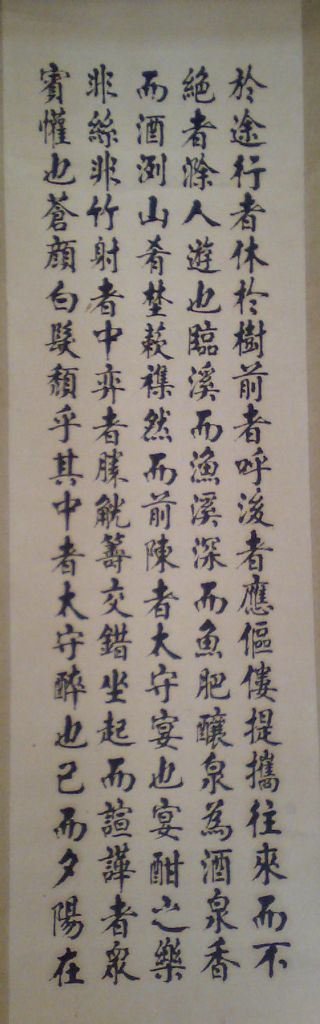 於途行者休於樹前者呼後者應傴僂提攜往來而不
絶者滁人遊也臨溪而漁溪深而魚肥釀泉為酒泉香
而酒洌山肴埜蔌襍然而前陳者太守宴也宴酣之樂
非絲非竹射者中弈者勝觥籌交錯坐起而諠譁者眾
賓懽也蒼顔白髮頽乎其中者太守醉也已而夕陽在